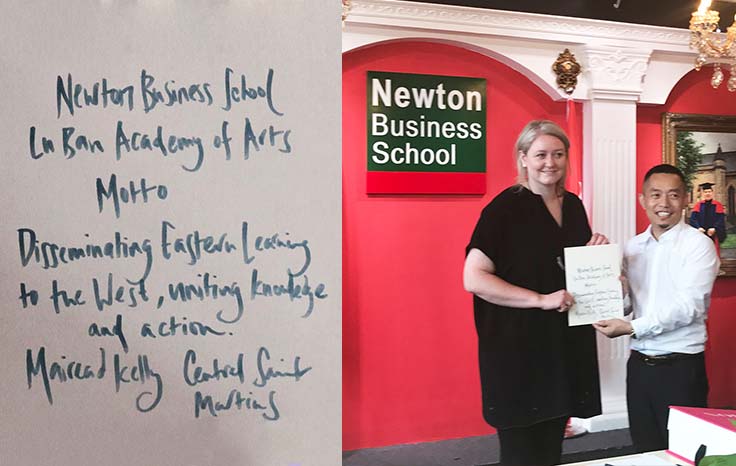 Newton Business School
Lu Ban Academy of Arts
Motto
Disseminating Eastern Learning
to the West, uniting knowledge
and action.
Mairead Kelly Central Saint
Martins
Newton
Business
School